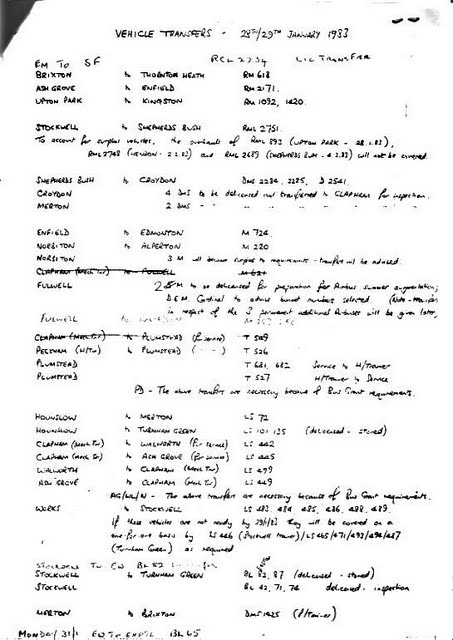 VEHICLE TRANSFERS - 28TH/29TH JANUARY 1983
FM TO SF RCL 2234 LIC TRANSFER
BRIXTON to THORNTON HEATH RM 618
ASH GROVE to ENFIELD RM 2171.
UPTON PARK to KINGSTON RM 1092, 1420.
STOCKWELL to SHEPHERDS BUSH RML 2751.
To account for surplus vehicles, the overhauls of RML 893 (UPTON PARK - 28.1.83),
RML 2748 (HENDON - 2.2.83) and RML 2689 (SHEPHERDS BUSH - 4.2.83) will not be covered.
SHEPHERDS BUSH to CROYDON DMS 2234, 2285, D 2541.
CROYDON 4 DMS to be delicensed and transferred to CLAPHAM for inspection.
MERTON 2 DMS
ENFIELD to EDMONTON M 724
NORBITON to ALPERTON M 220
NORBITON 3 M will become surplus to requirements - transfer will be advised.
CLAPHAM to FULWELL M 62
FULWELL 2 M to be delicensed for preparation for Airbus summer augmentation;
D.E.M. Cardinal to advise bonnet numbers selected. (Note -
in respect of the 3 permanent additional Airbuses will be given later,
FULWELL
CLAPHAM (Mech. Tr) to PLUMSTEAD (for service) T 509
PECKHAM (H/Tr) to PLUMSTEAD T 526
PLUMSTEAD T 681, 682 Service to H/Trainer
PLUMSTEAD T 527 H/Trainer to Service
PD - The above transfers are necessary because of Bus Grant requirements.
HOUNSLOW to MERTON LS 72
HOUNSLOW to TURNHAM GREEN LS 101, 135 (delicensed - stored)
CLAPHAM (Mech. Tr) to WALWORTH (for service) LS 442
CLAPHAM (Mech. Tr) to ASH GROVE (for service) LS 445
WALWORTH to CLAPHAM (Mech Tr) LS 499
ASH GROVE to CLAPHAM (Mech Tr) LS 449
AG/WL/N - The above transfers are necessary because of Bus Grant requirements.
WORKS to STOCKWELL LS 483, 484, 485, 486, 488, 489.
If these vehicles are not ready by 29/1/83 they will be covered on a
one-for-one basis by LS 446 (Stockwell trainer)/LS 465/471/492/494/497
(Turnham Green) as required
STOCKWELL TO EW BL 52
STOCKWELL to TURNHAM GREEN BL 82, 87 (delicensed - stored)
STOCKWELL BL 42, 71, 74 delicensed. inspection
MERTON to BRIXTON DMS 1425 (P/Trainer)
MONDAY 31/1 EW TO BL 65